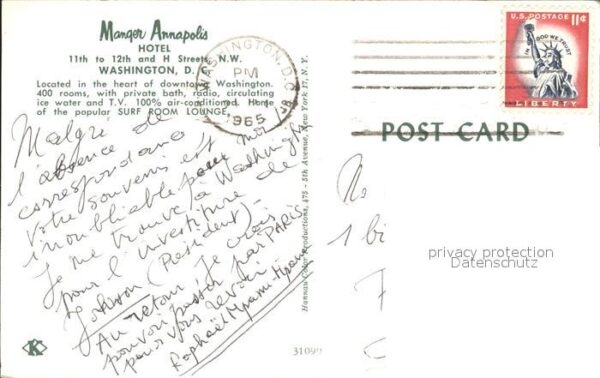 Manger Annapolis
HOTEL
11th to 12th and H Streets, N.W.
WASHINGTON, D.
Located in the heart of downtown Washington.
400 rooms, with private bath, radio, circulating
ice water and T.V. 100% air-conditioned. Home
of the popular SURF ROOM LOUNGE.
WASHINGTON, D.C.
PM
1965
U.S. POSTAGE 11¢
IN GOD WE TRUST
LIBERTY
POST CARD
Malgré de
l'absence
correspondance
votre souvenir est
inoubliable pour moi
Je me trouve à Washington
pour l'investiture de
Johnson (Président)-
Au retour je crois
pouvoir passer par PARIS
pour vous revoir
Raphaël
Hannau Color Productions, 475 - 5th Avenue, New York 17, N.Y.
1 bi
privacy protection
Datenschutz
K
31099